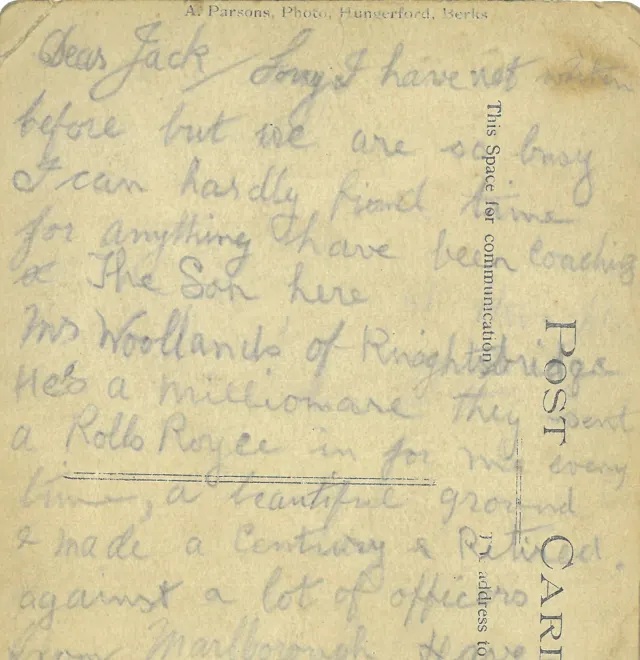 A. Parsons, Photo, Hungerford, Berks
Dear Jack / Sorry I have not written
before but we are so busy
I can hardly find time
for anything have been coaching
& The Son here
Mrs Woollands of Knightsbridge
He's a millionare they sent
a Rolls Royce in for me every
time, a beautiful ground
& made a Century & Retired.
against a lot of officers
from Marlborough Have
This Space for communication
POST CAR
The address to